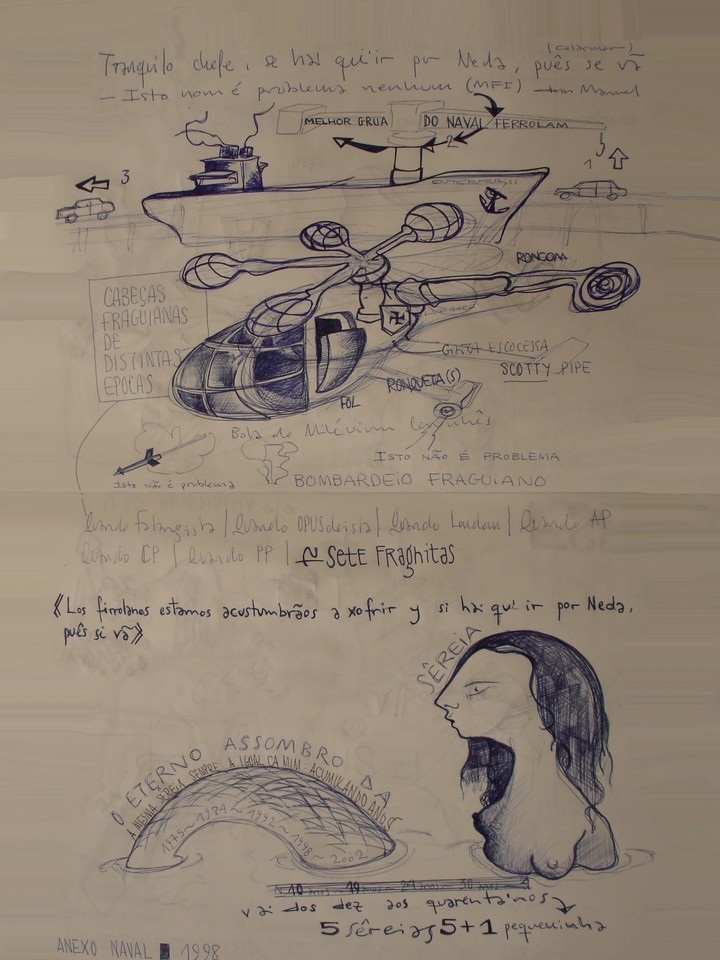 (colanmar)
Tranquilo chefe, se hai qui'ir por Neda, puês se vã
— Isto nom é problema nenhum (MFI) — Manuel
MELHOR GRUA DO NAVAL FERROLAM
2
1
3
3
RONCOM
CABEÇAS
FRAGUIANAS
DE
DISTINTAS
EPOCAS
GAITA ESCOCESSA
SCOTTY PIPE
RONQUETA(S)
FOL
Bola do Milénium
ISTO NÃO É PROBLEMA
Isto não é problema
BOMBARDEIO FRAGUIANO
Quando Falangista | Quando OPUSdeista | Quando | Quando AP
Quando CP | Quando PP | ~ SETE FRAGHITAS
《Los firrolanos estamos acustumbrãos a xofrir y si hai qui ir por Neda,
puês si vã》
SÊREIA
O ETERNO ASSOMBRO DA
A MESMA SEREIA SEMPRE A IGOAL CA MIM ACUMULANDO ANOS
1975 ~ 1984 ~ 1992 ~ 1998 ~ 2002
10 anos — 19 anos — 24 anos — 30 anos — 4
vai dos dez aos quarenta'nos
5 sêreias 5+1 pequeninha
ANEXO NAVAL 1998